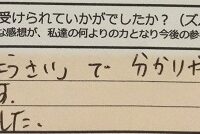 受けられていかがでしたか？（ズ
な感想が、私達の何よりの力となり今後の参
うさい」で 分かりや
す.
した.